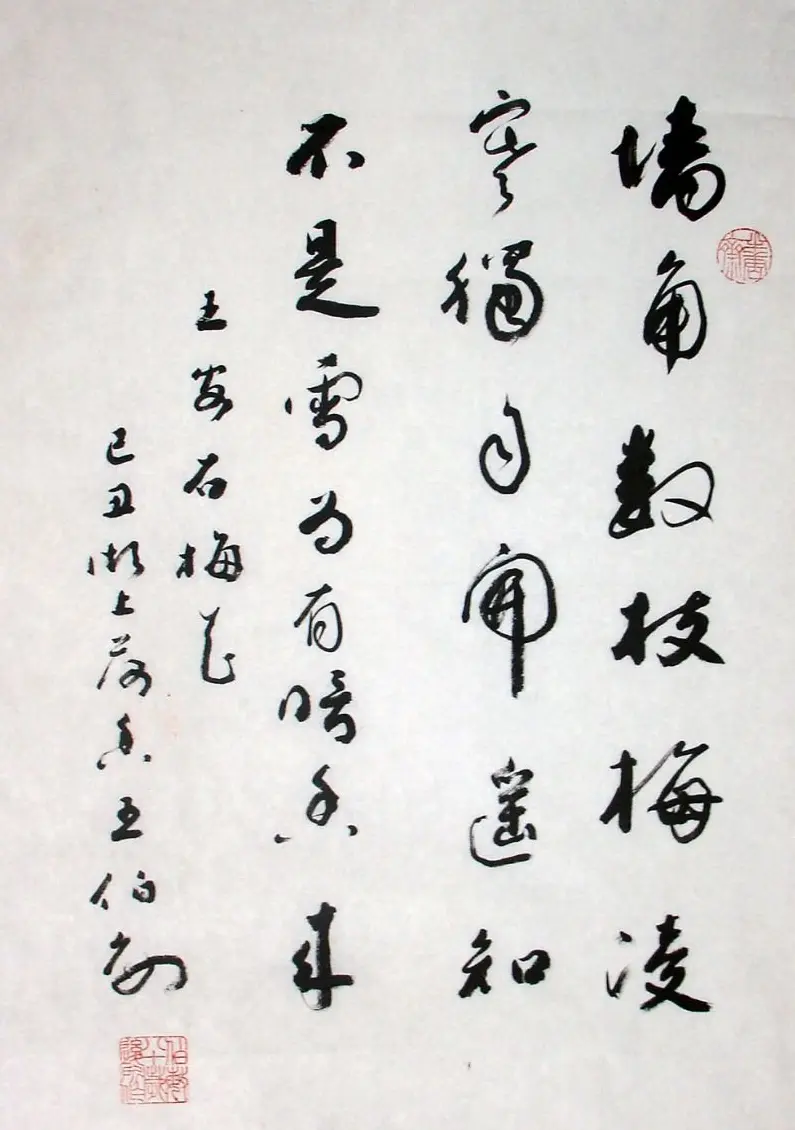 墙角数枝梅凌
寒獨自開遥知
不是雪为有暗香来
王安石梅花
己丑湖上香王伯敏